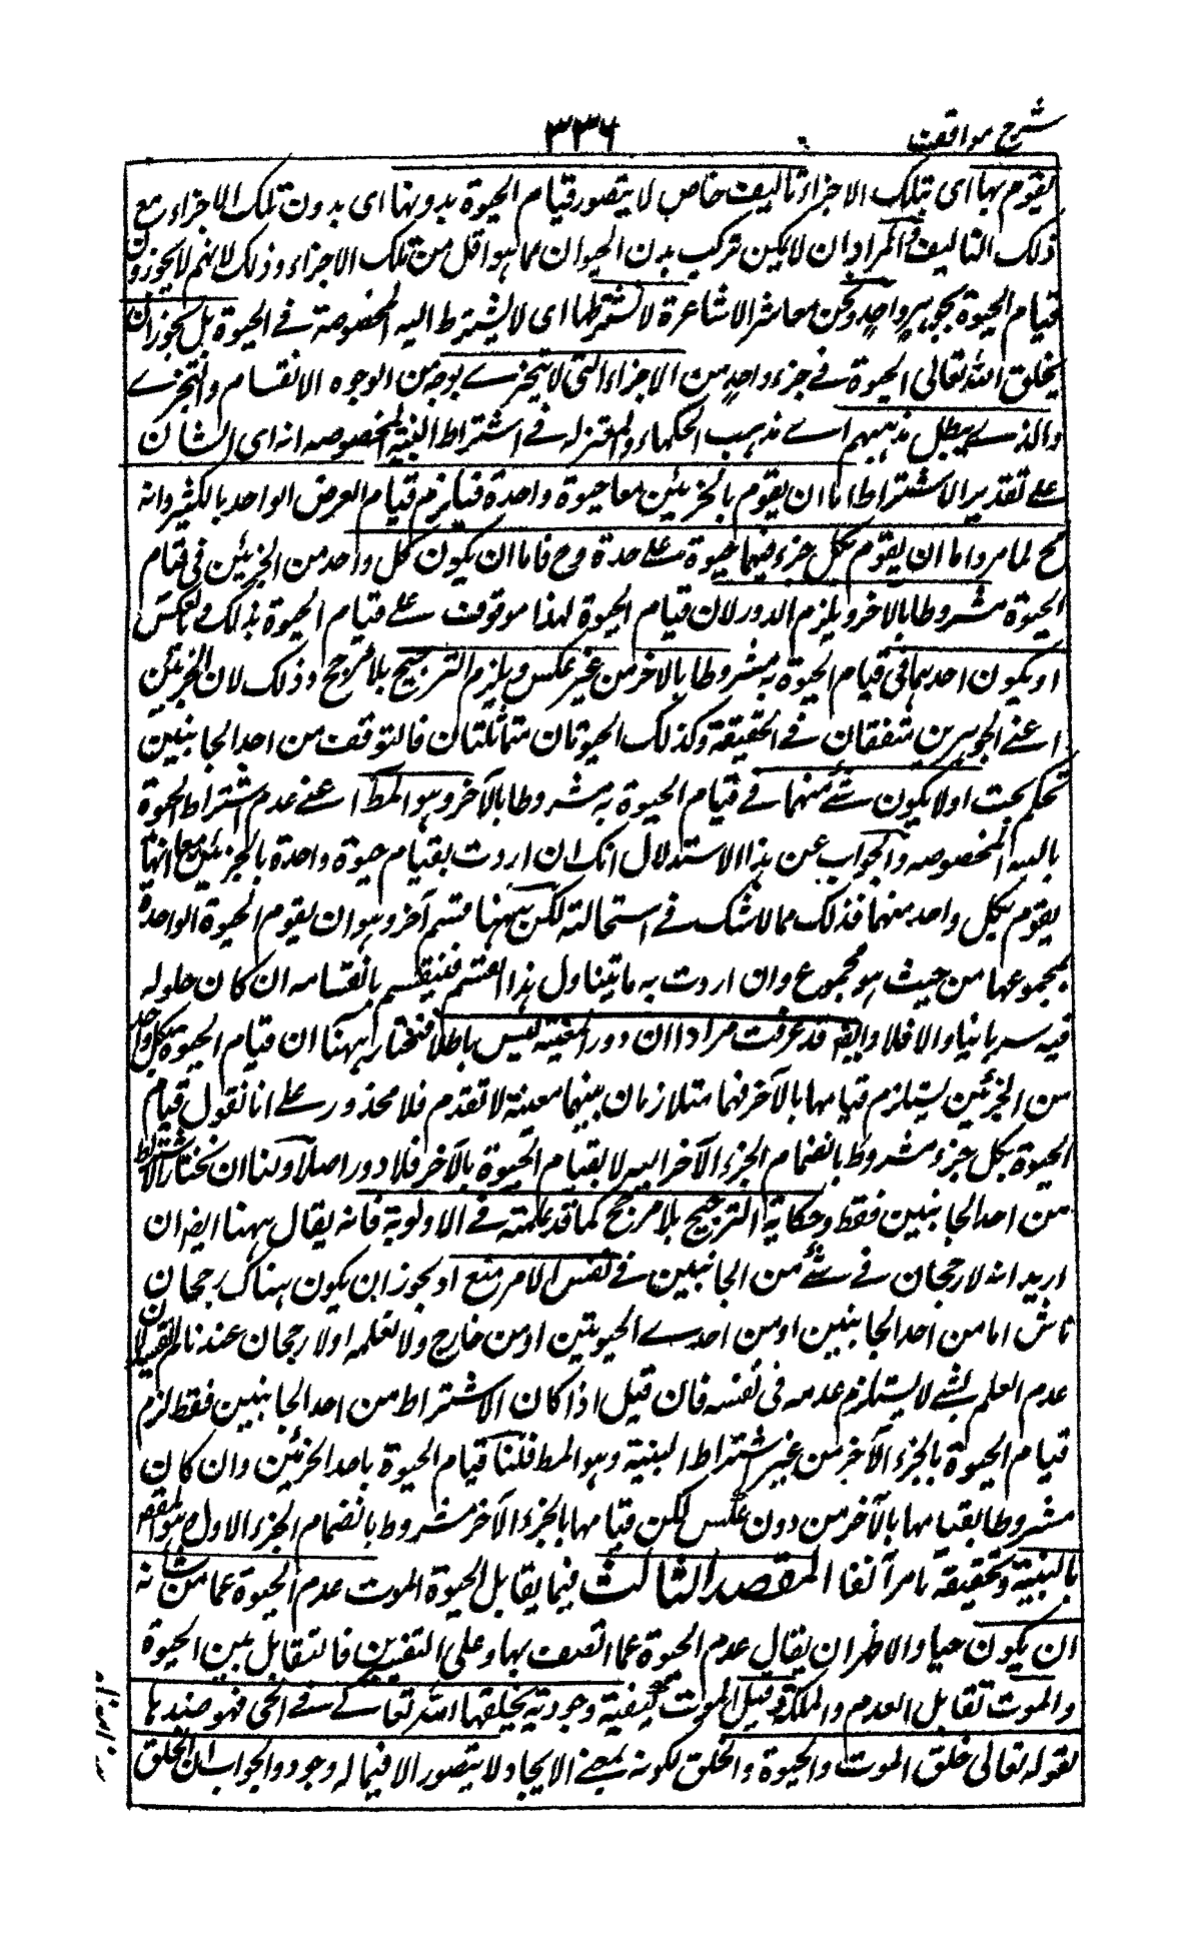 شرح مواقف
٣٣٦
يقوم بها اى بتلك الاجزاء تاليف خاص لا يتصور قيام الحيوة بدونها اى بدون تلك الاجزاء مع
ذلك التاليف والمراد ان لا يمكن تركب بدن الحيوان مما هو اقل من تلك الاجزاء وذلك لانهم لا يجوزون
قيام الحيوة بجوهر واحد ونحن معاشر الاشاعرة لا نشترطها اى لا يشترط البنية المخصوصة فى الحيوة بل يجوز ان
يخلق الله تعالى الحيوة فى جزء واحد من الاجزاء التى لا يتجزے بوجه من الوجوه الانقسام والتجزے
والذے يبطل مذهبهم اے مذهب الحكماء والمعتزله فے اشتراط البنية المخصوصه انه اى الشان
على تقدير الاشتراط اما ان يقوم بالجزئين معا حيوة واحدة فيلزم قيام العرض الواحد بالكثير وانه
مح لما مر واما ان يقوم بكل جزء منهما حيوة على حدة وح فاما ان يكون كل واحد من الجزئين فى قيام
الحيوة مشروطا بالاخر ويلزم الدور لان قيام الحيوة لهذا موقوف على قيام الحيوة بذلك وبالعكس
او يكون احدهما فى قيام الحيوة به مشروطا بالاخر من غير عكس ويلزم الترجيح بلا مرجح وذلك لان الجزئين
اعنے الجوهرين متفقان فے الحقيقة وكذلك الحيوتان متماثلتان فالتوقف من احد الجانبين
تحكم بحت اولا يكون شئ منهما فے قيام الحيوة به مشروطا بالآخر وهو المط اعنے عدم اشتراط الحيوة
بالبنية المخصوصه والجواب عن هذا الاستدلال انك ان اردت بقيام حيوة واحدة بالجزئين معا انها
يقوم بكل واحد منهما فذلك مما لا شك فے استحالته لكن ههنا قسم آخر وهو ان يقوم الحيوة الواحدة
بمجموعهما من حيث هو مجموع وان اردت به ما يتناول هذا القسم فينقسم بانقسامه ان كان حلوله
فيه سريانيا والا فلا وايضا قد عرفت مرادا ان دور المعية ليس باطلا فنختار ههنا ان قيام الحيوة بكل واحد
من الجزئين يستلزم قيامها بالآخر فهما متلازمان بينهما معية لا تقدم فلا محذور على انا نقول قيام
الحيوة بكل جزء مشروط بانضمام الجزء الآخر اليه لا بقيام الحيوة بالآخر فلا دور اصلا ولنا ان نختار الاشتراط
من احد الجانبين فقط وحكاية الترجيح بلا مرجح كما قد علمته فے الاولوية فانه يقال ههنا ايضا ان
اريد انه لا رجحان فے شئ من الجانبين فے نفس الامر منع اذ يجوز ان يكون هناك رجحان
ناش اما من احد الجانبين او من احدے الحيوتين او من خارج ولا نعلمه اولا رجحان عندنا لم يفد لان
عدم العلم بشے لا يستلزم عدمه فى نفسه فان قيل اذا كان الاشتراط من احد الجانبين فقط لزم
قيام الحيوة بالجزء الآخر من غير اشتراط البنية وهو المط قلنا قيام الحيوة باحد الجزئين وان كان
مشروطا بقيامها بالآخر من دون عكس لكن قيامها بالجزء الآخر مشروط بانضمام الجزء الاول وهو المقصود
بالبنية وتحقيقه ما مر آنفا المقصد الثالث فيما يقابل الحيوة الموت عدم الحيوة عما من شانه
ان يكون حيا والاظهر ان يقال عدم الحيوة عما اتصف بها وعلى التفسيرين فالتقابل بين الحيوة
والموت تقابل العدم والملكة وقيل الموت كيفية وجودية يخلقها الله تعالے فے الحى فهو ضدها
لقوله تعالى خلق الموت والحيوة والخلق لكونه بمعنے الايجاد لا يتصور الا فيما له وجود والجواب ان الخلق